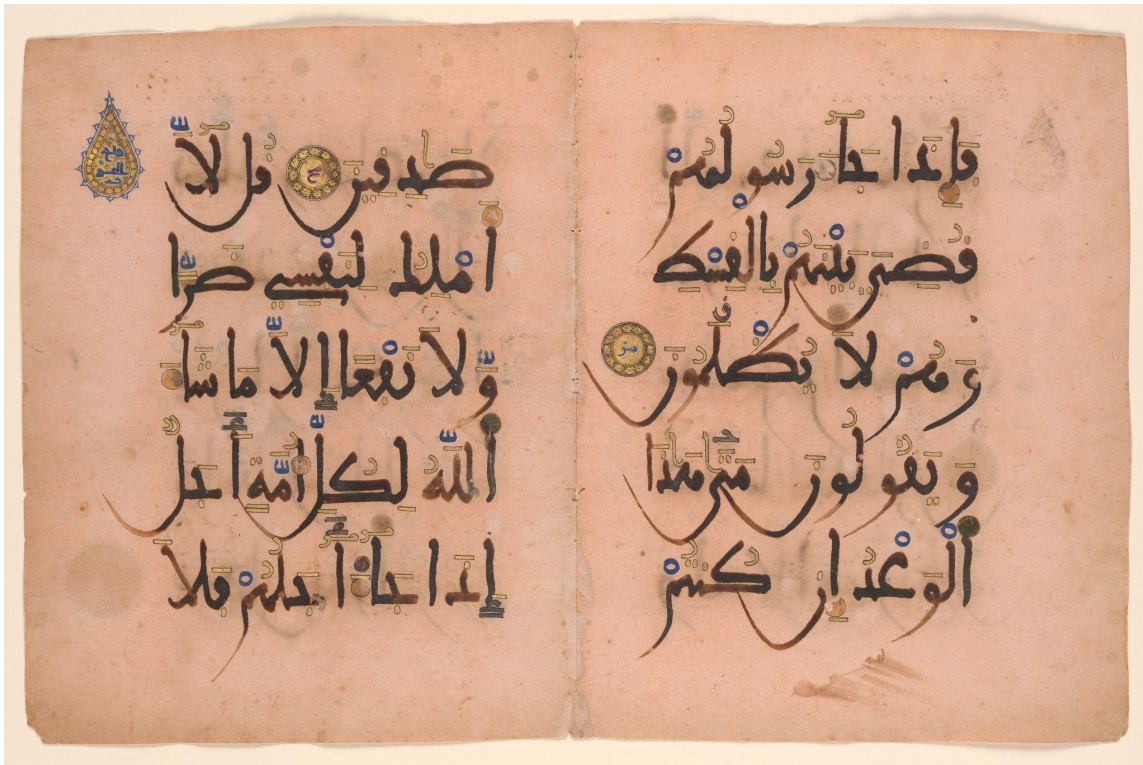 فَإِذَا جَآءَ رَسُولُهُمْ
قُضِيَ بَيْنَهُمْ بِالْقِسْطِ
وَهُمْ لَا يُظْلَمُونَ مز
وَيَقُولُونَ مَتَى هَذَا
الْوَعْدُ إِن كُنتُمْ
صَدِقِينَ قُل لَّا
أَمْلِكُ لِنَفْسِي ضَرًّا
وَّلَا نَفْعًا إِلَّا مَا شَآءَ
اللَّهُ لِكُلِّ أُمَّةٍ أَجَلٌ
إِذَا جَآءَ أَجَلُهُمْ فَلَا